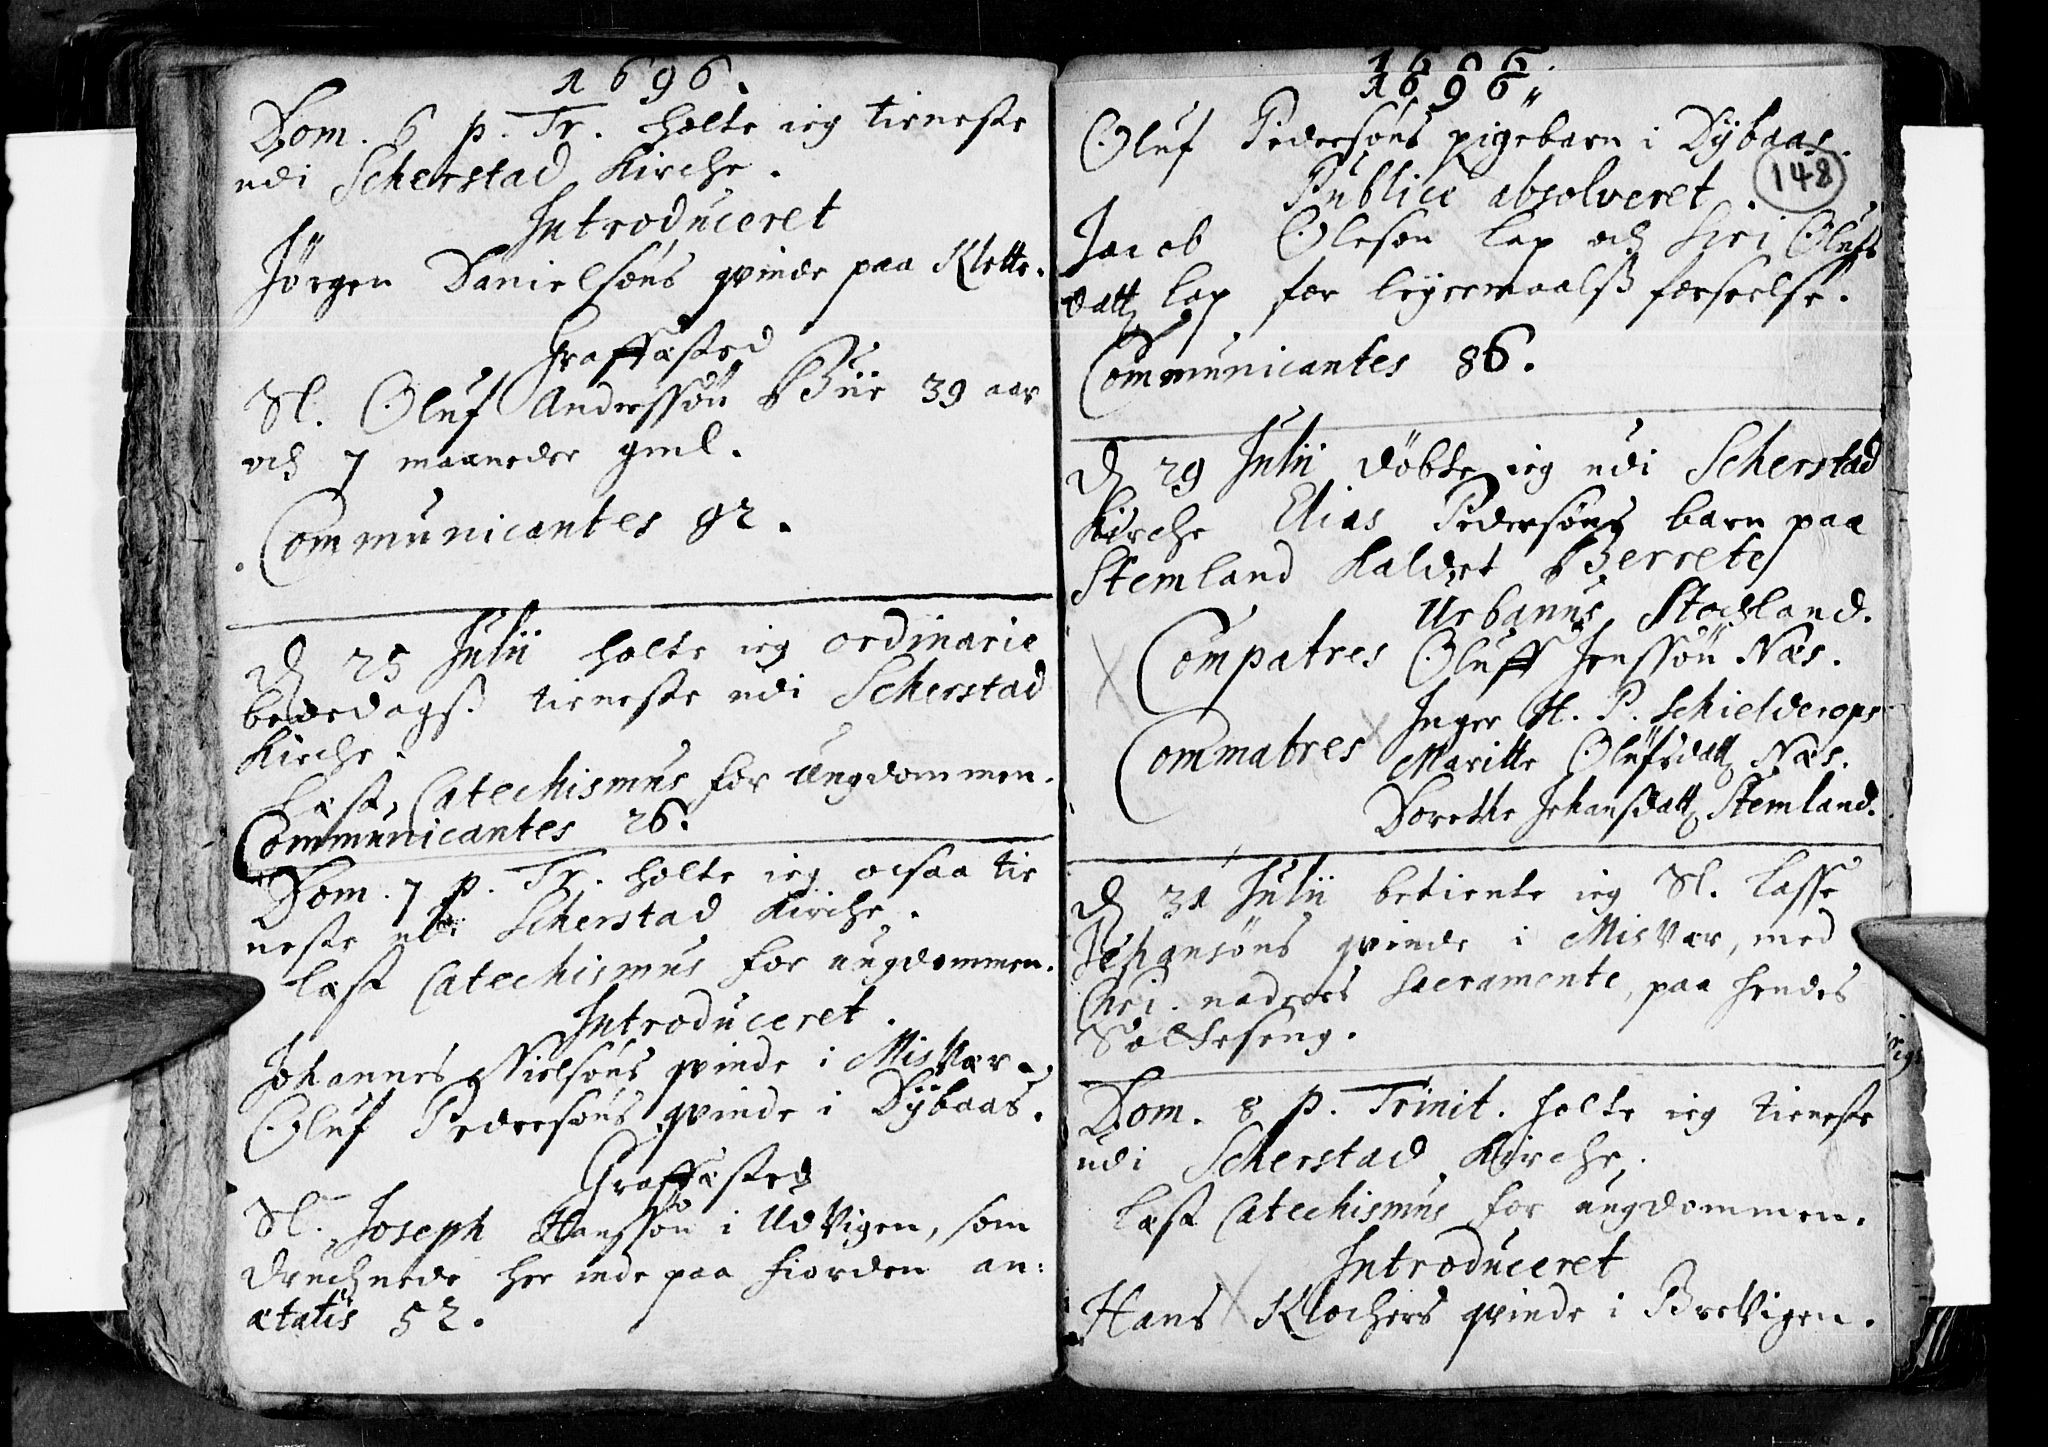 1696.
Dom. 6 p. Tr. holte ieg tieneste
udi Scherstad Kirche.
Introduceret
Jørgen Danielsøns qvinde paa Klette.
Graffæsted
Sl. Oluf Anderssøn Biie 39 aar
och 7 maaneder gml.
Communicantes 92.
D 25 Julii holte ieg ordinarie
bededagß tieneste udi Scherstad
Kirche.
Læst, Catechismus for Ungdommen.
Communicantes 26.
Dom. 7 p. Tr. holte ieg ocsaa tie
neste udi Scherstad Kirche.
Læst Catechismus for ungdommen.
Introduceret.
Johannes Nielsøns qvinde i MisVær.
Oluf Pedersøns qvinde i Dÿbaas.
Graffæsted
Sl. Joseph Hanssøn i UdVigen, som
druchnede her inde paa fiorden an:
ætatis 52.
1696.
1696
Oluf Pedersøns pigebarn i Dÿbaas.
148
Publicè absolveret.
Jacob Olesøn Lap och Siri Olufs
datt Lap for legermaalß forseelse.
Communicantes 86.
D 29 Julii døbte ieg udi Scherstad
Kirche Elias Pedersøns barn paa
Stemland Kaldet Berrete
Urbanus Stochland.
Compatres Oluff Jenssøn Næs.
Inger H. P. Schielderops
Commatres Maritte Olufsdatt Næs.
Dorethe Johansdatt Stemland.
D 31 Julii betiente ieg Sl. Lasse
Johansøns qvinde i MisVær, med
Chri. naderes Sacramente, paa hendes
Sotteseng.
Dom. 8 p. Trinit. holte ieg tieneste
udi Scherstad Kirche.
Læst Catechismus for ungdommen.
Introduceret
Hans Klochers qvinde i BreVigen.